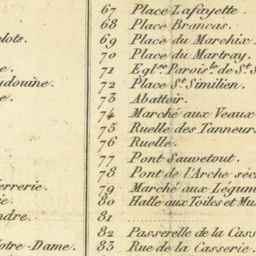 67 Place Lafayette.
68 Place Brancas.
69 Place du Marchix
70 Place du Martray.
71 Egl.se Parois.le de S.t S
72 Place S.t Similien.
73 Abattoir.
74 Marché aux Veaux
75 Ruelle des Tanneurs
76 Ruelle.
77 Pont Sauvetout.
78 Pont de l'Arche séc
79 Marché aux Légum
80 Halle aux Toiles et Mu
81
82 Passerelle de la Cass
83 Rue de la Casserie.
lots.
e.
udouine.
e.
errerie.
ie
ndre.
otre-Dame.